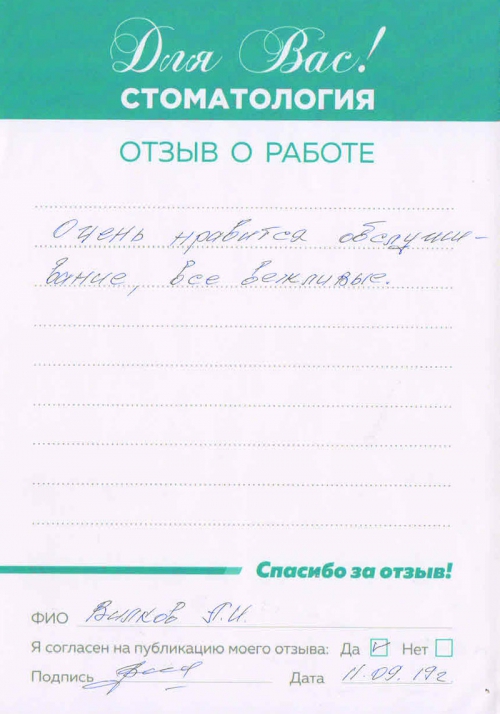 Для Вас!
СТОМАТОЛОГИЯ
ОТЗЫВ О РАБОТЕ
Очень нравится обслужи-
вание, все вежливые.
Спасибо за отзыв!
ФИО Вилков П.И.
Я согласен на публикацию моего отзыва: Да ☑ Нет ☐
Подпись Дата 11.09.19г